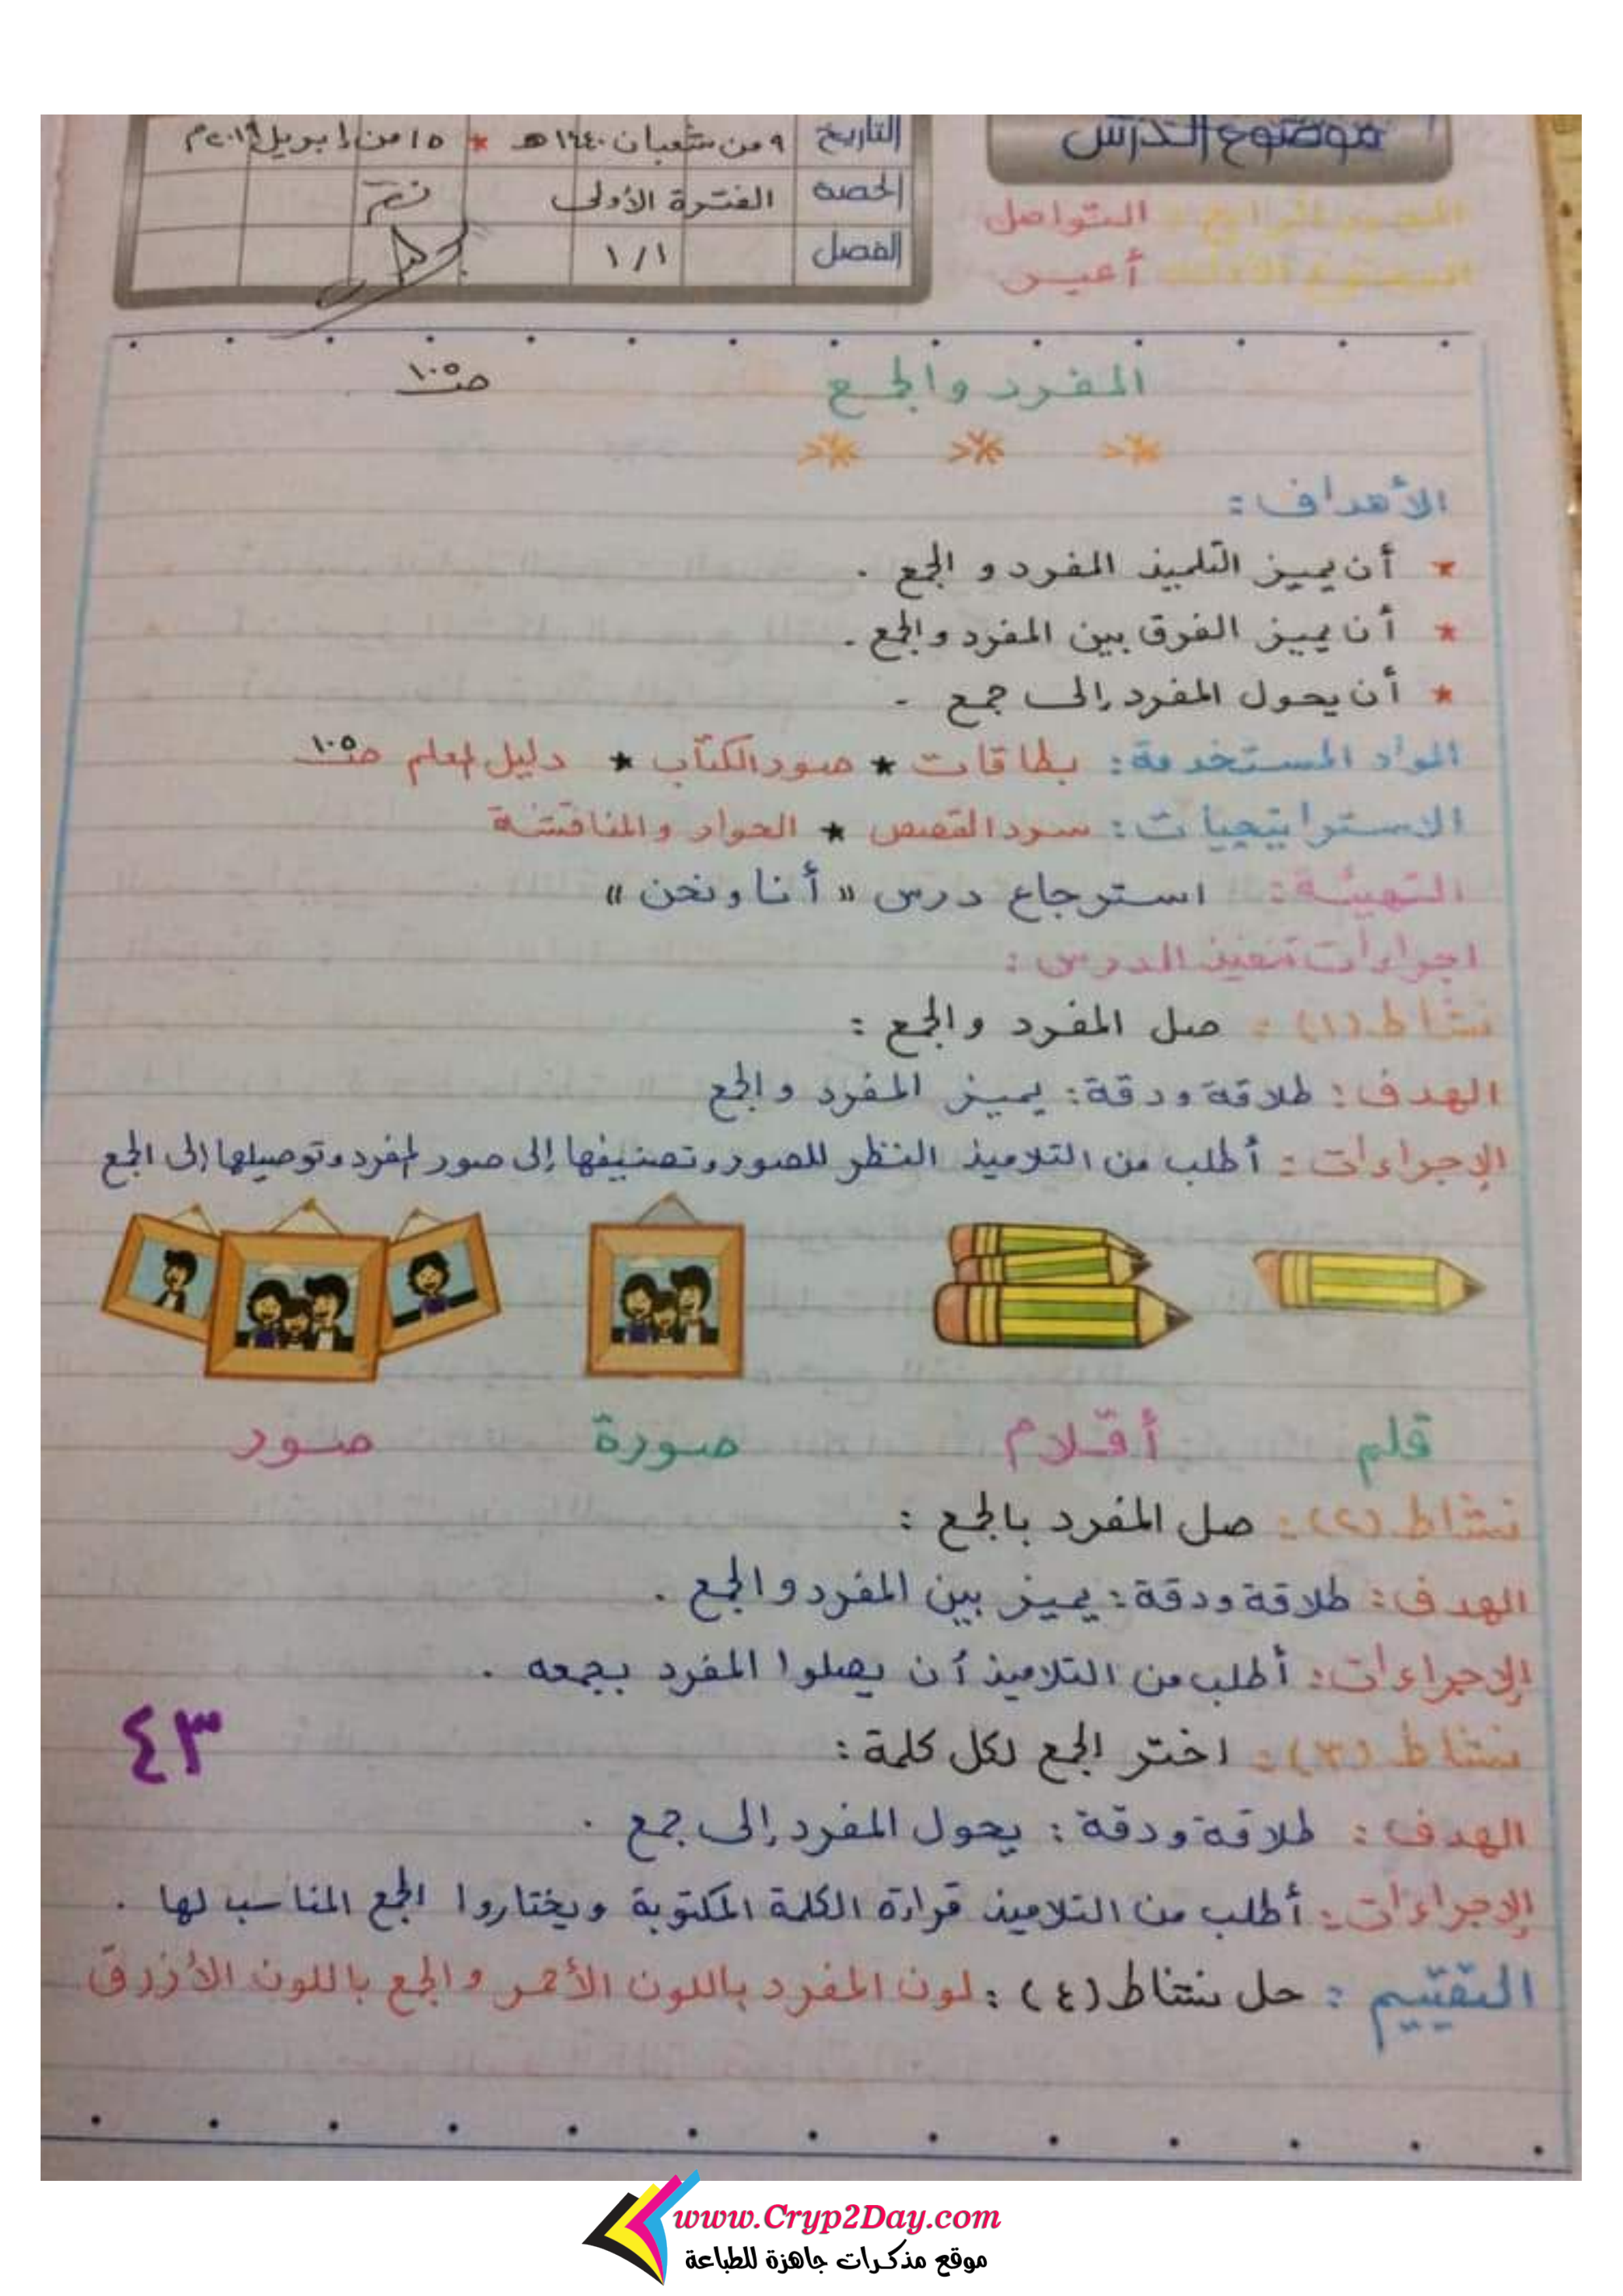 موضوع الدرس
التاريخ ٩ من شعبان ١٤٤٠هـ * ١٥ من إبريل ٢٠١٩م
الحصة الفترة الأولى
الفصل ١/١
المحور الرابع: التواصل
الموضوع الثالث أعبر
المفرد والجمع صـ ١٠٥
الأهداف:
* أن يميز التلميذ المفرد و الجمع .
* أن يميز الفرق بين المفرد والجمع .
* أن يحول المفرد إلى جمع -
المواد المستخدمة: بطاقات * صور الكتاب * دليل المعلم صـ ١٠٥
الاستراتيجيات: سرد القصص * الحوار والمناقشة
التهيئة: استرجاع درس « أنا ونحن »
اجراءات تنفيذ الدرس:
نشاط (١): صل المفرد والجمع :
الهدف: طلاقة ودقة: يميز المفرد والجمع
الإجراءات: أطلب من التلاميذ النظر للصور وتصنيفها إلى صور المفرد وتوصيلها إلى الجمع
قلم أقلام صورة صور
نشاط (٢): صل المفرد بالجمع :
الهدف: طلاقة ودقة: يميز بين المفرد والجمع .
الإجراءات: أطلب من التلاميذ أن يصلوا المفرد بجمعه .
نشاط (٣): اختر الجمع لكل كلمة :
٤٣
الهدف: طلاقة ودقة: يحول المفرد إلى جمع .
الإجراءات: أطلب من التلاميذ قراءة الكلمة المكتوبة ويختاروا الجمع المناسب لها .
التقييم: حل نشاط (٤): لون المفرد باللون الأحمر والجمع باللون الأزرق
www.Cryp2Day.com
موقع مذكرات جاهزة للطباعة